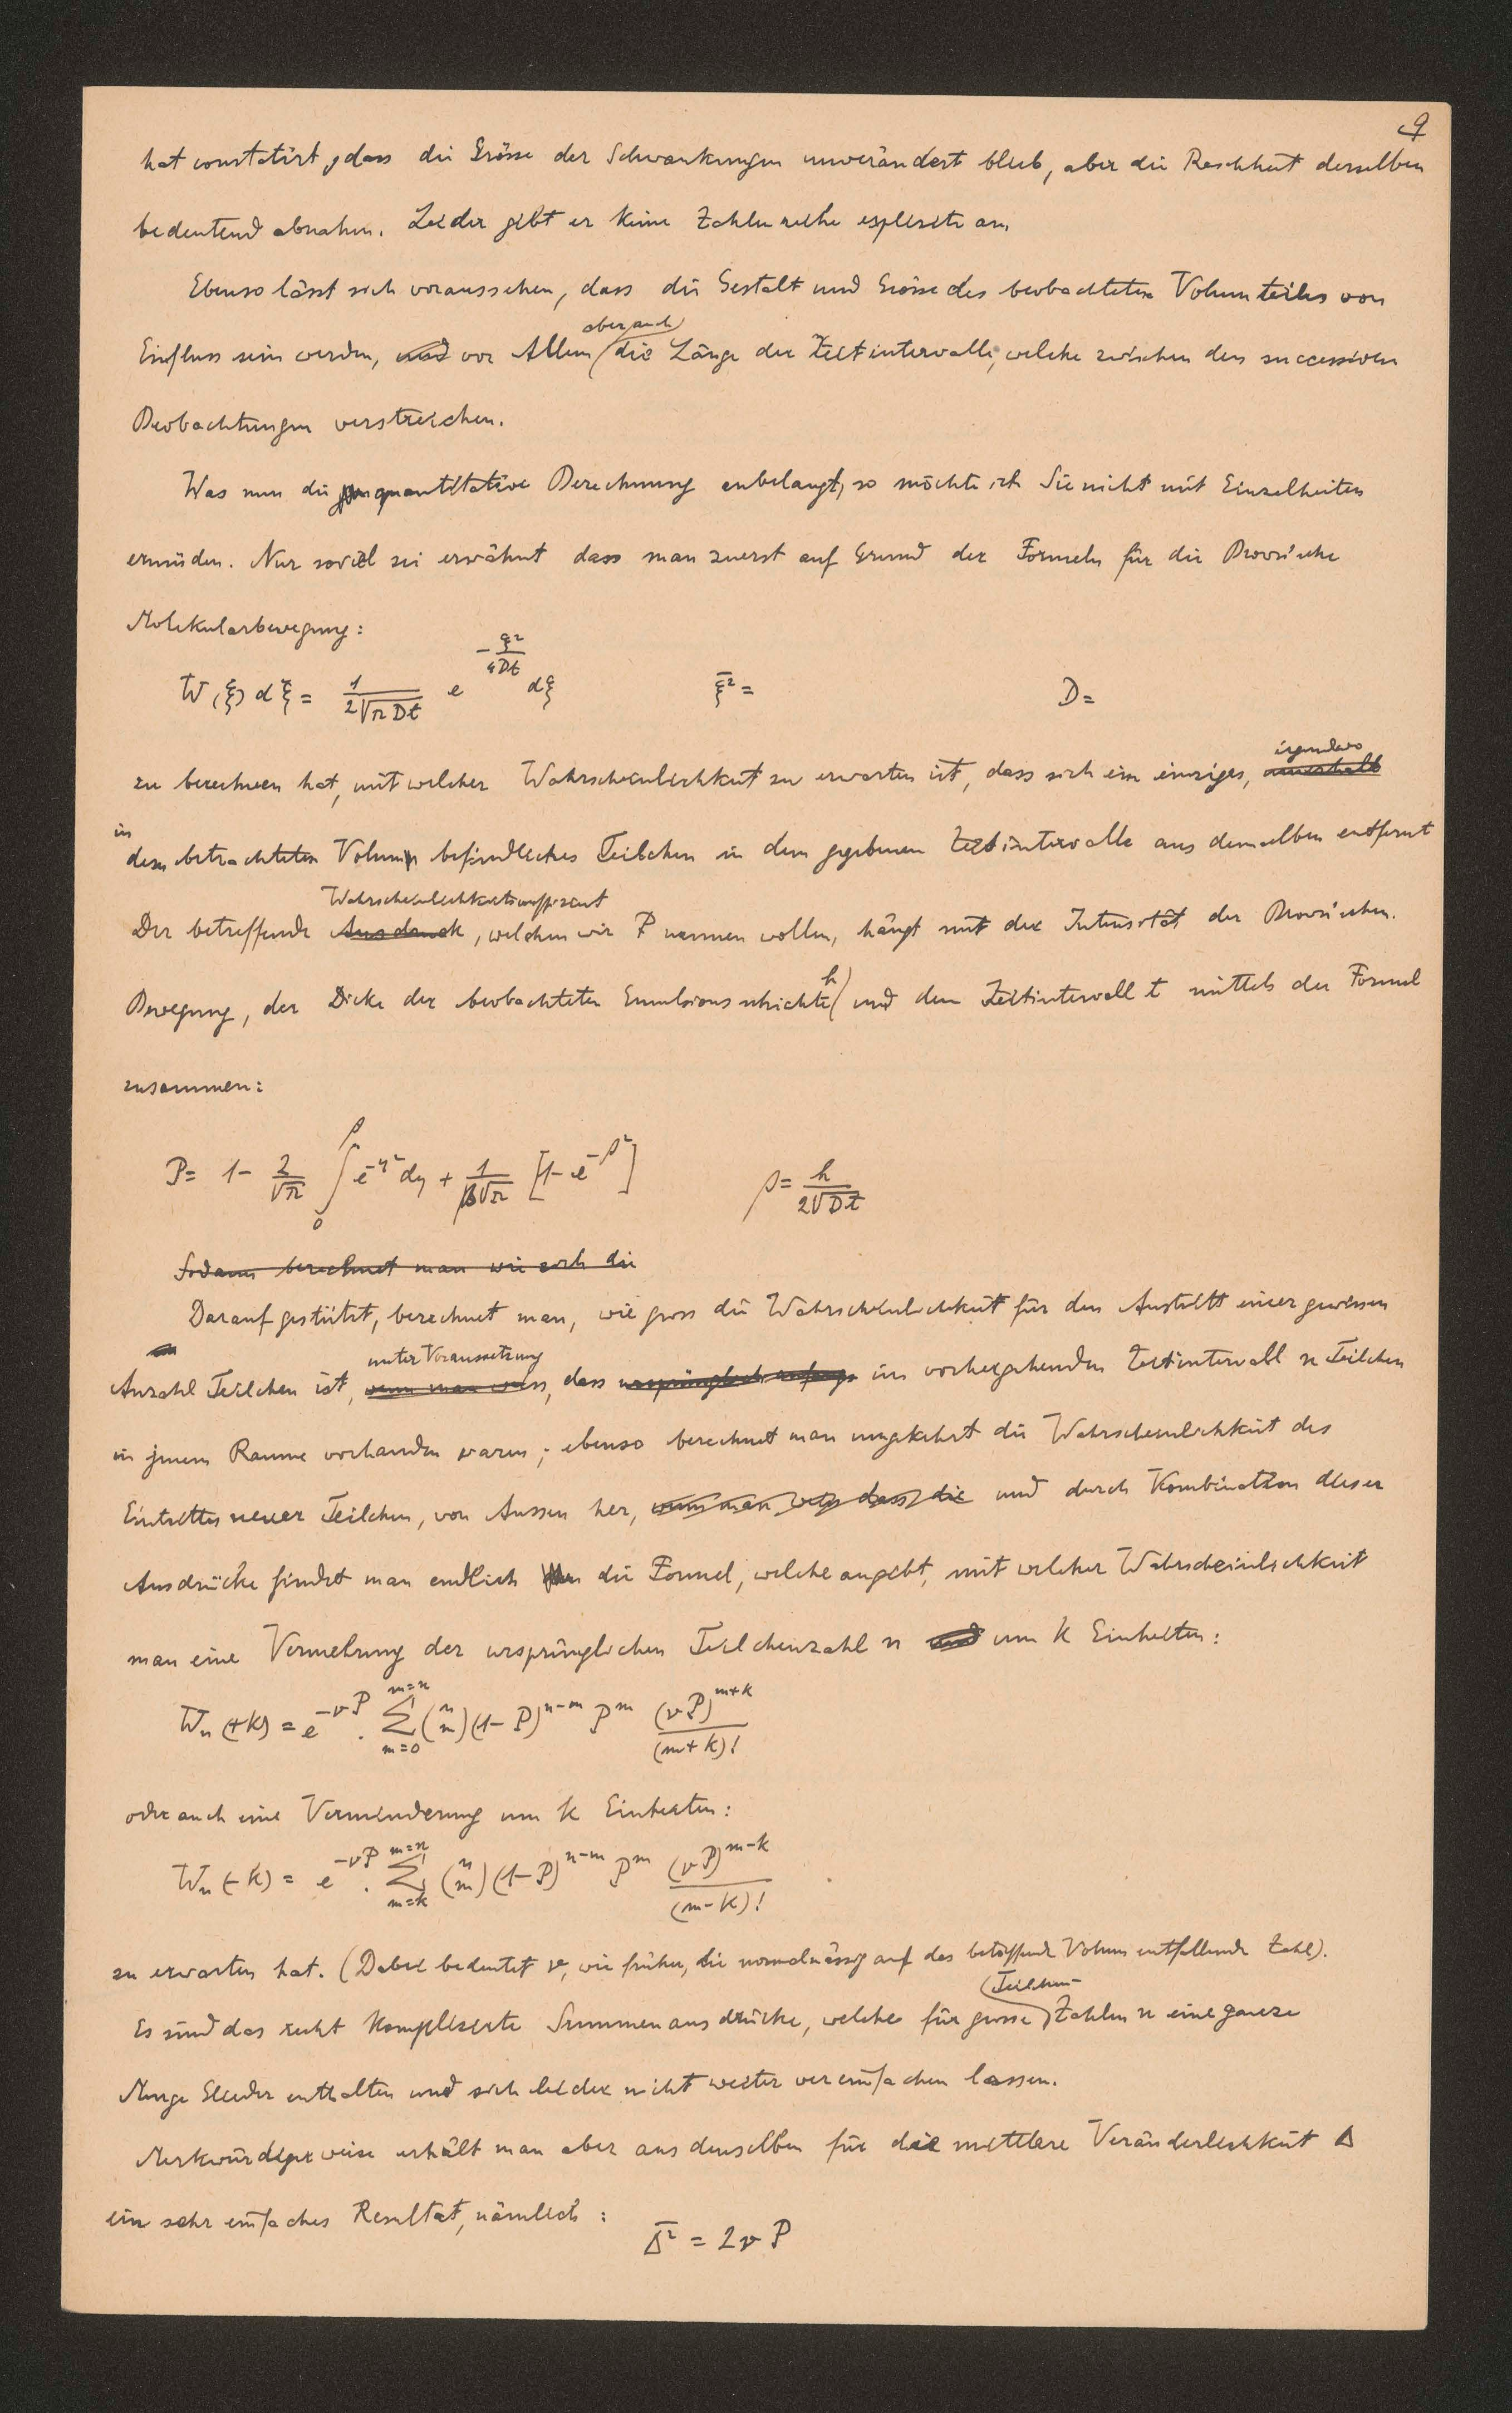 9
hat constatirt, dass die Grösse der Schwankungen unverändert blieb, aber die Raschheit derselben
bedeutend abnahm. Leider gibt er keine Zahlenreihe explicite an.
Ebenso lässt sich voraussehen, dass die Gestalt und Grösse des beobachteten Volumteiles von
aber auch
Einfluss sein werden, und vor Allem die Länge der Zeitintervalle, welche zwischen den successiven
Beobachtungen verstreichen.
Was nun die quantitative Berechnung anbelangt, so möchte ich Sie nicht mit Einzelheiten
ermüden. Nur soviel sei erwähnt dass man zuerst auf Grund der Formeln für die Brown'sche
Molekularbewegung:
W(ξ)dξ = 1/(2√πDt) e^(-ξ²/4Dt) dξ ξ̄² = D =
irgendwo
zu berechnen hat, mit welcher Wahrscheinlichkeit zu erwarten ist, dass sich ein einziges, innerhalb
in
dem betrachteten Volumen befindliches Teilchen in dem gegebenen Zeitintervalle aus demselben entfernt
Wahrscheinlichkeitscoeffizient
Der betreffende Ausdruck, welchen wir P nennen wollen, hängt mit der Intensität der Brown'schen.
h
Bewegung, der Dicke der beobachteten Emulsionsschichte und dem Zeitintervall t mittels der Formel
zusammen:
P = 1 - 2/√π ∫₀^β e^(-y²) dy + 1/(β√π) [1 - e^(-β²)] β = h/(2√Dt)
Sodann berechnet man wie sich die
Darauf gestützt, berechnet man, wie gross die Wahrscheinlichkeit für den Austritt einer gewissen
unter Voraussetzung
Anzahl Teilchen ist, wenn man weiss, dass ursprünglich anfangs im vorhergehenden Zeitintervall n Teilchen
in jenem Raume vorhanden waren; ebenso berechnet man umgekehrt die Wahrscheinlichkeit des
Eintrittes neuer Teilchen, von Aussen her, wenn man weiss dass die und durch Kombination dieser
Ausdrücke findet man endlich die Formel, welche angibt, mit welcher Wahrscheinlichkeit
man eine Vermehrung der ursprünglichen Teilchenzahl n und um k Einheiten:
Wₙ(+k) = e^(-νP) . Σ_{m=0}^{m=n} (n m) (1-P)^(n-m) P^m (νP)^(m+k)/(m+k)!
oder auch eine Verminderung um k Einheiten:
Wₙ(-k) = e^(-νP) . Σ_{m=k}^{m=n} (n m) (1-P)^(n-m) P^m (νP)^(m-k)/(m-k)!
zu erwarten hat. (Dabei bedeutet ν, wie früher, die normalmässig auf das betreffende Volum entfallende Zahl).
Teilchen-
Es sind das recht komplizierte Summenausdrücke, welche für grosse Zahlen n eine ganze
Menge Glieder enthalten und sich leider nicht weiter vereinfachen lassen.
Merkwürdigerweise erhält man aber aus denselben für die mittlere Veränderlichkeit Δ
ein sehr einfaches Resultat, nämlich:
Δ̄² = 2νP